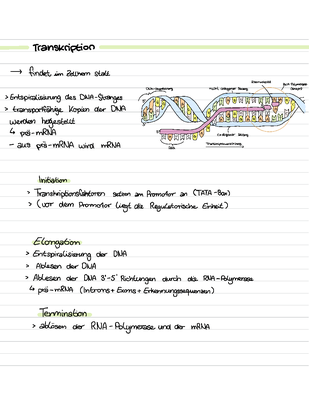 Transkription
→ findet im Zellkern statt
> Entspiralisierung des DNA-Stranges
> transportfähige Kopien der DNA
werden hergestellt
↳ prä-mRNA
– aus prä-mRNA wird mRNA
Initiation
> Transkriptionsfaktoren setzen am Promotor an (TATA-Box)
> (vor dem Promotor liegt die Regulatorische Einheit)
Elongation
> Entspiralisierung der DNA
> Ablesen der DNA
> Ablesen der DNA 3'-5' Richtungen durch die RNA-Polymerase
↳ prä-mRNA (Introns + Exons + Erkennungssequenzen)
Termination
> ablösen der RNA-Polymerase und der mRNA